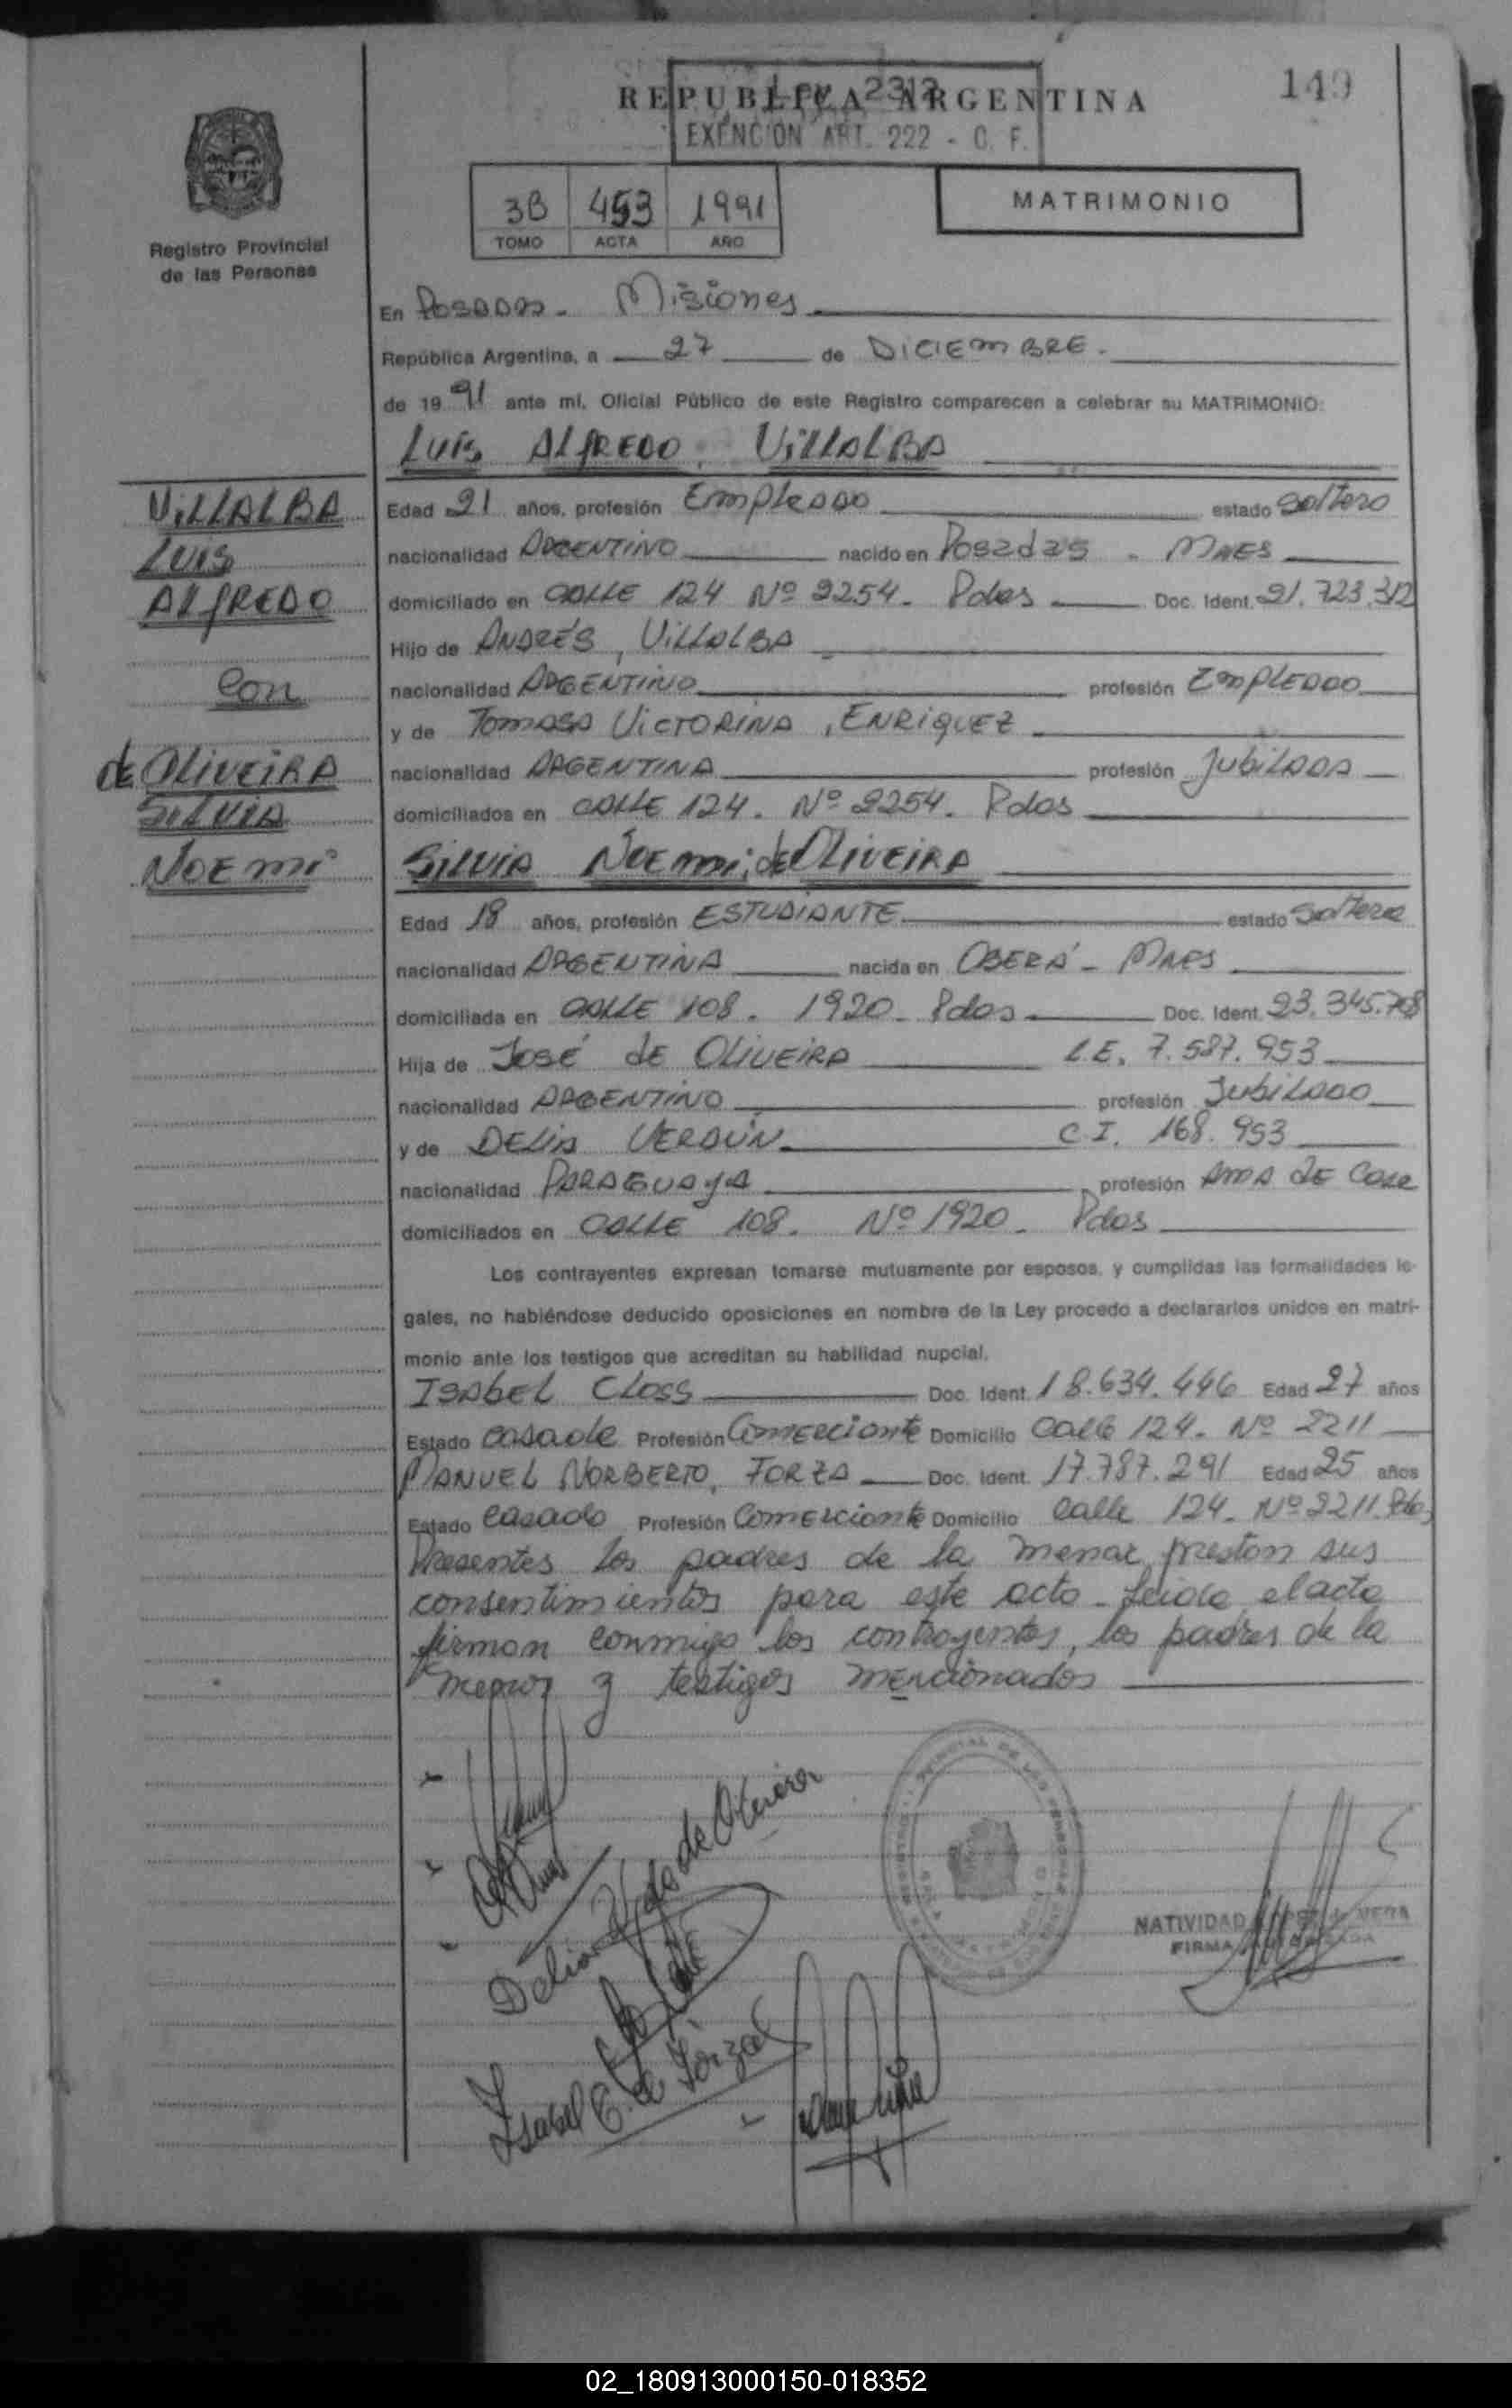 149
REPUBLICA ARGENTINA
Ley 2312
EXENCION ART. 222 - C. F.
3B 453 1991
TOMO ACTA AÑO
MATRIMONIO
Registro Provincial
de las Personas
En Posadas - Misiones
República Argentina, a 27 de DICIEMBRE -
de 19 91 ante mí, Oficial Público de este Registro comparecen a celebrar su MATRIMONIO:
Luis ALFREDO, VILLALBA
VILLALBA
LUIS
ALFREDO
Con
de OLIVEIRA
SILVIA
NOEMI
Edad 21 años, profesión Empleado estado soltero
nacionalidad ARGENTINO nacido en Posadas - MNES
domiciliado en CALLE 124 Nº 2254 - Pdas Doc. Ident. 21.723.312
Hijo de ANDRÉS, VILLALBA
nacionalidad ARGENTINO profesión EMPLEADO
y de TOMASA VICTORINA, ENRIQUEZ
nacionalidad ARGENTINA profesión JUBILADA
domiciliados en CALLE 124. Nº 2254. Pdas
SILVIA NOEMI, de OLIVEIRA
Edad 18 años, profesión ESTUDIANTE estado soltera
nacionalidad ARGENTINA nacida en OBERÁ - MNES
domiciliada en CALLE 108. 1920 - Pdas Doc. Ident. 23.345.708
Hija de José de OLIVEIRA L.E. 7.587.953
nacionalidad ARGENTINO profesión JUBILADO
y de DELIA VERDÚN C.I. 168.953
nacionalidad PARAGUAYA profesión AMA DE Casa
domiciliados en CALLE 108. Nº 1920 - Pdas
Los contrayentes expresan tomarse mutuamente por esposos, y cumplidas las formalidades le-
gales, no habiéndose deducido oposiciones en nombre de la Ley procedo a declararlos unidos en matri-
monio ante los testigos que acreditan su habilidad nupcial.
ISABEL CLOSS Doc. Ident. 18.634.446 Edad 27 años
Estado casada Profesión Comerciante Domicilio Calle 124. Nº 2211
MANUEL NORBERTO, FORZA Doc. Ident. 17.787.291 Edad 25 años
Estado Casado Profesión Comerciante Domicilio Calle 124. Nº 2211. Pdas
Presentes los padres de la menor prestan sus
consentimientos para este acto - Leida el acta
firman conmigo los contrayentes, los padres de la
menor y testigos mencionados
Delia de Oliveira
Isabel C. de Forza
NATIVIDAD VERA
FIRMA AUTORIZADA
02_180913000150-018352